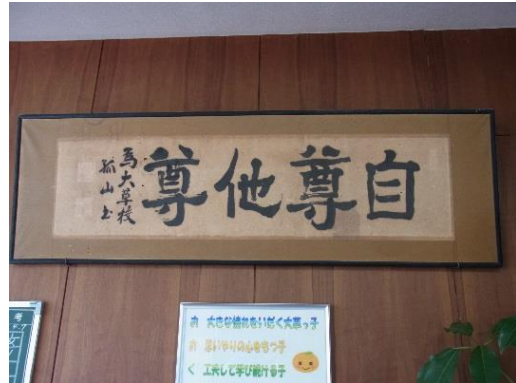 自尊他尊
為大草校
孤山書
お 大きな憧れをいだく大草っ子
お 思いやりの心をもつ子
く 工夫して学び続ける子
考